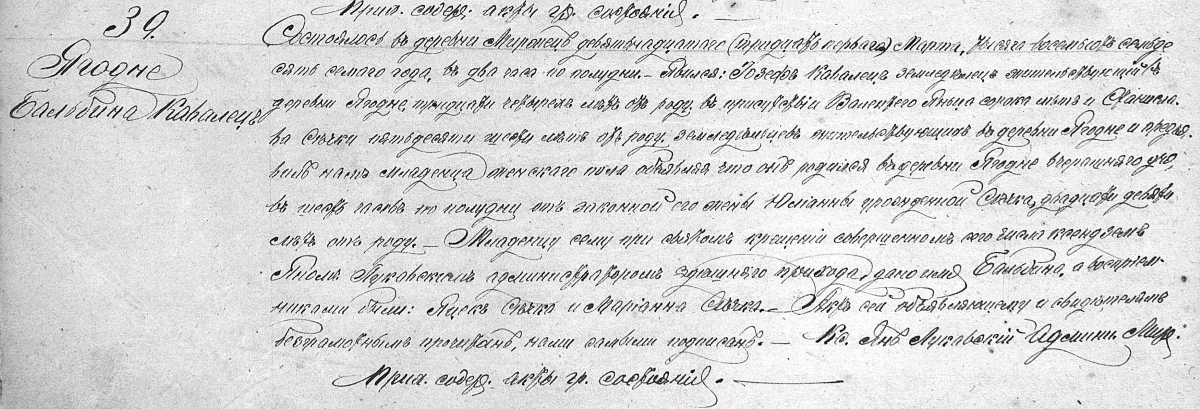 Прих. содер. акты гр. состояния.
39.
Ягодне
Бальбина Ковалецъ
Состоялось въ деревни Миронецъ девятнадцатаго (тридцать перваго) Марта, тысяча восемьсотъ семьде
сятъ седмаго года, въ два часа по полудни. – Явился: Іозефъ Ковалецъ земледѣлецъ жительствующій въ
деревни Ягодне, тридцати четырехъ лѣтъ отъ роду, въ присутствіи Валентего Яньца сорока лѣтъ и Станисла-
ва Сѣчки пятьдесяти шести лѣтъ отъ роду, земледѣльцевъ жительствующихъ въ деревни Ягодне и предъя
вилъ намъ младенца женскаго пола объявляя что онъ родился въ деревни Ягодне вчерашняго дня,
въ шесть часовъ по полудни отъ законной его жены Юліанны урожденной Сѣчка, двадцати девяти
лѣтъ отъ роду. – Младенцу сему при святомъ крещеніи совершенномъ сего числа ксендзомъ
Яномъ Лукавскимъ администраторомъ здѣшняго прихода, дано имя Бальбина, а воспріем-
никами были: Яцекъ Сѣчка и Маріанна Сѣчка. – Актъ сей объявляющему и свидѣтелямъ
безграмотнымъ прочитанъ, нами самыми подписанъ. – Кс. Янъ Лукавскій Админ. Мир.
Прих. содер. акты гр. состоянія.